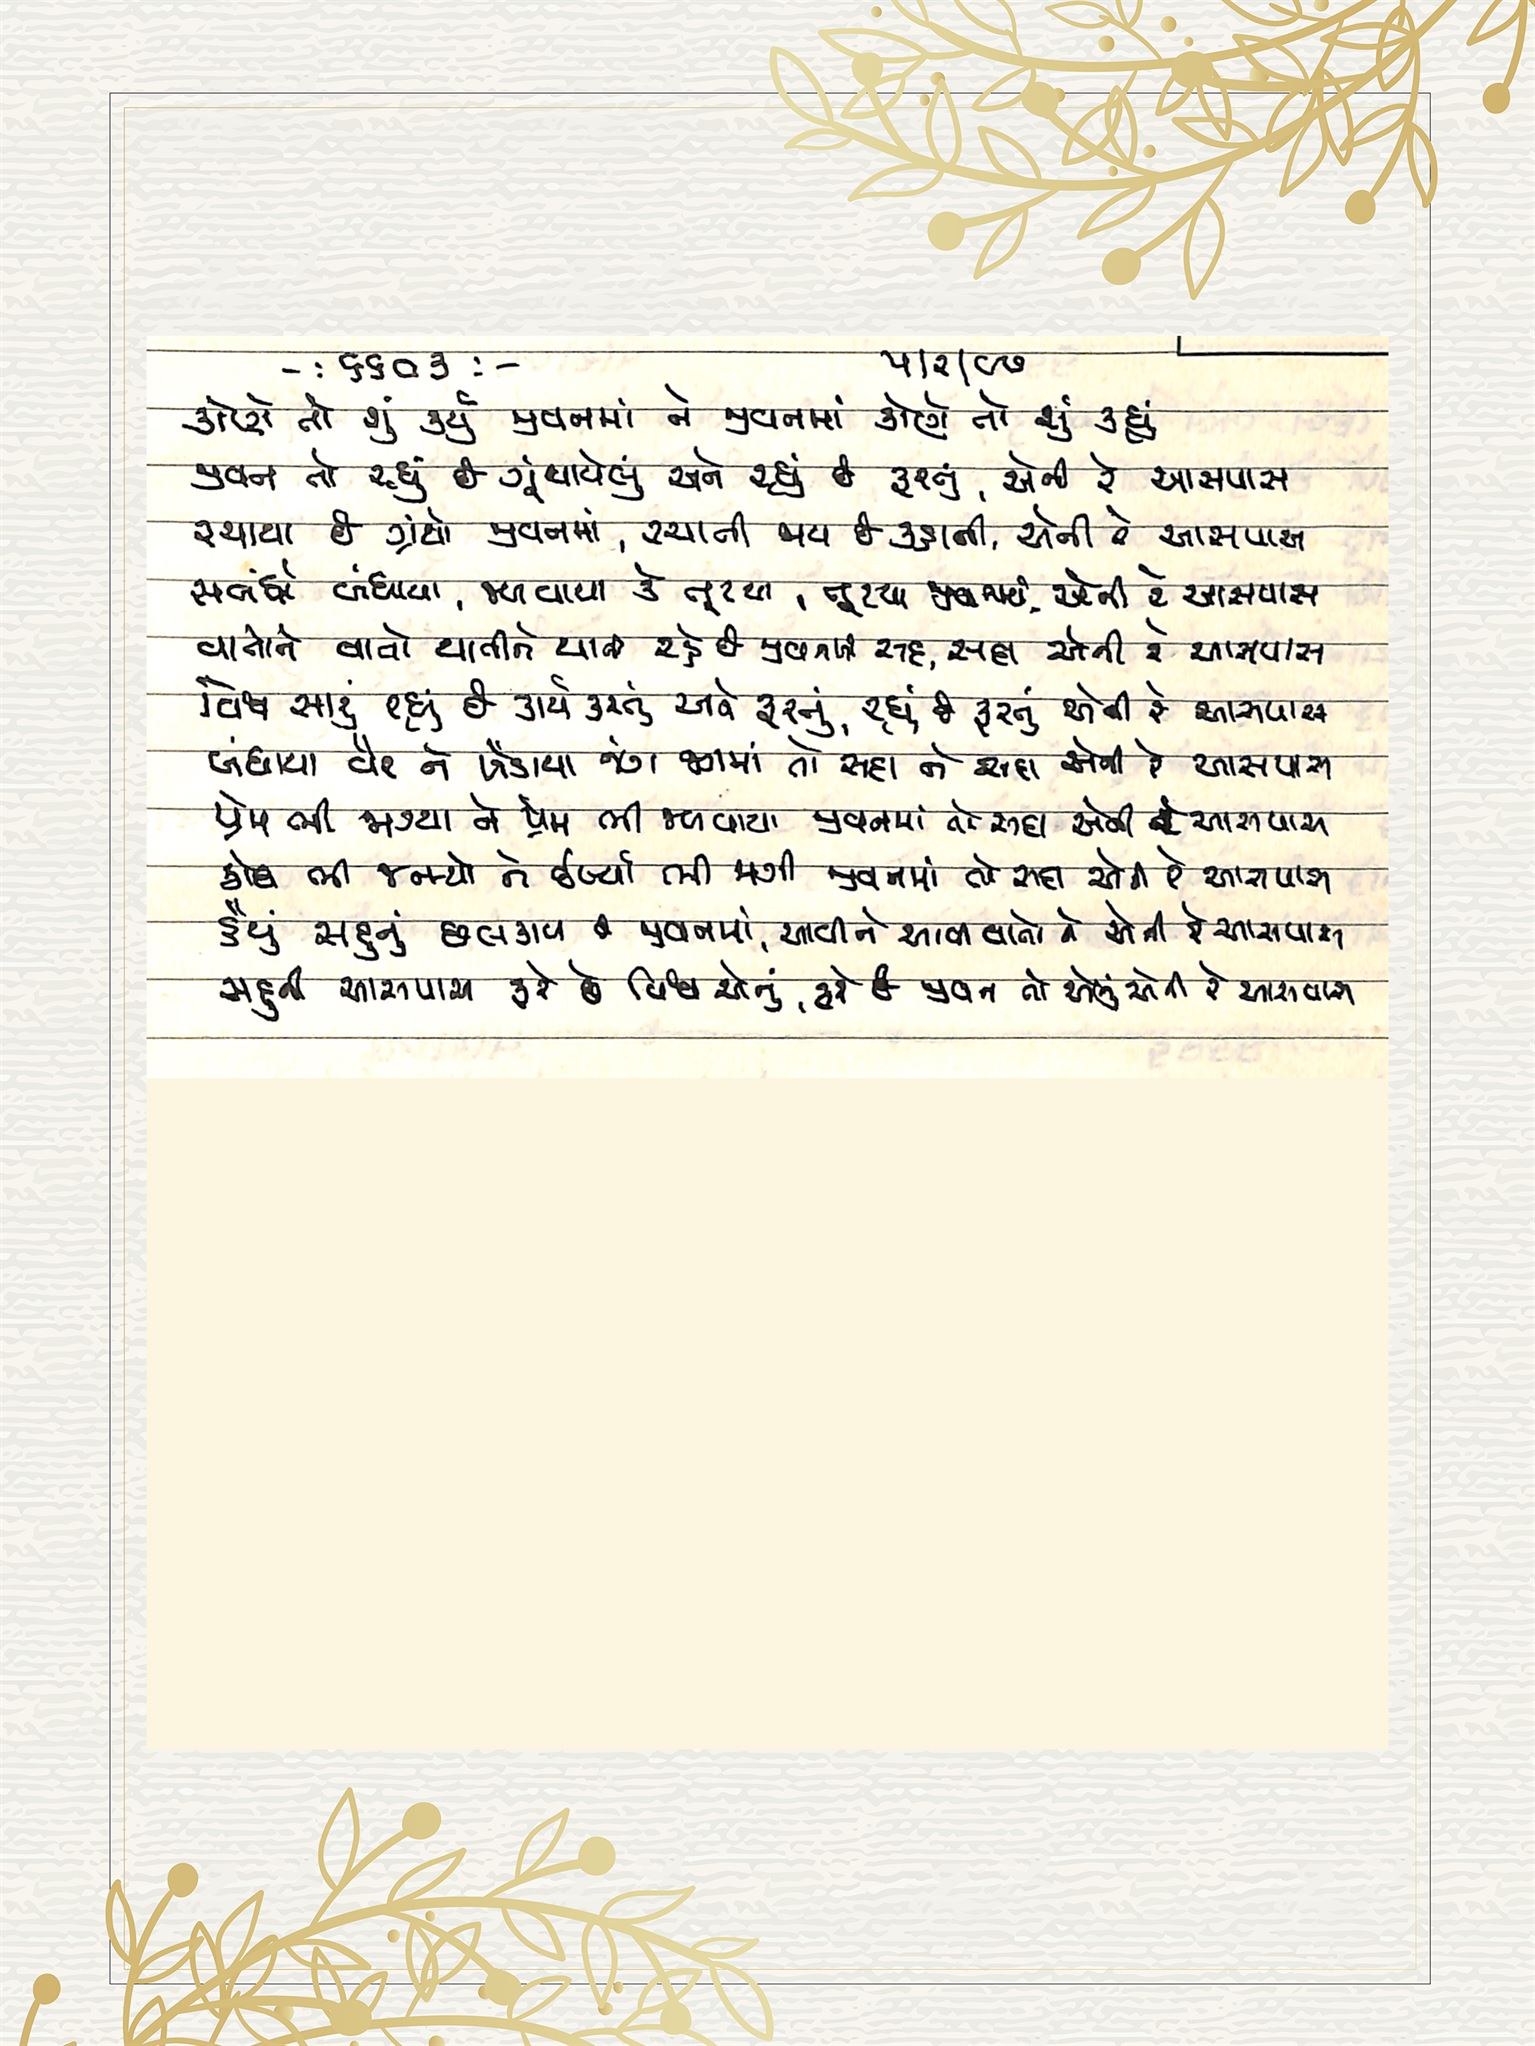 -: ૬૬૦૩ :- ૫/૨/૯૭
કોણે તો શું કર્યું જીવનમાં ને જીવનમાં કોણે તો શું કહ્યું
જીવન તો રહ્યું છે ગૂંથાયેલું અને રહ્યું છે ફરતું, એની રે આસપાસ
રચાયા છે ગ્રંથો જીવનમાં, રચાતી જાય છે કડાની, એની રે આસપાસ
સબંધો બંધાયા, જળવાયા કે તૂટયા, તૂટયા એની રે આસપાસ
વાતોને વાતો થાતીને થાતી રહે છે જીવનમાં સદા, સદા એની રે આસપાસ
વિશ્વ સારું રહ્યું છે કાર્ય કરતું અને ફરતું, રહ્યું છે ફરતું એની રે આસપાસ
બંધાયા વૈર ને ખેડાયા જંગ જગમાં તો સદા ને સદા એની રે આસપાસ
પ્રેમ ભી જાગ્યા ને પ્રેમ ભી જળવાયા જીવનમાં તો સદા એની રે આસપાસ
ક્રોધ ભી જનમ્યો ને ઈર્ષ્યા ભી જાગી જીવનમાં તો સદા એની રે આસપાસ
હૈયું સહુનું છલકાય છે જીવનમાં, આવીને વાતો ને એની રે આસપાસ
સહુની આસપાસ ફરે છે વિશ્વ એનું, ફરે છે જીવન તો એનું એની રે આસપાસ